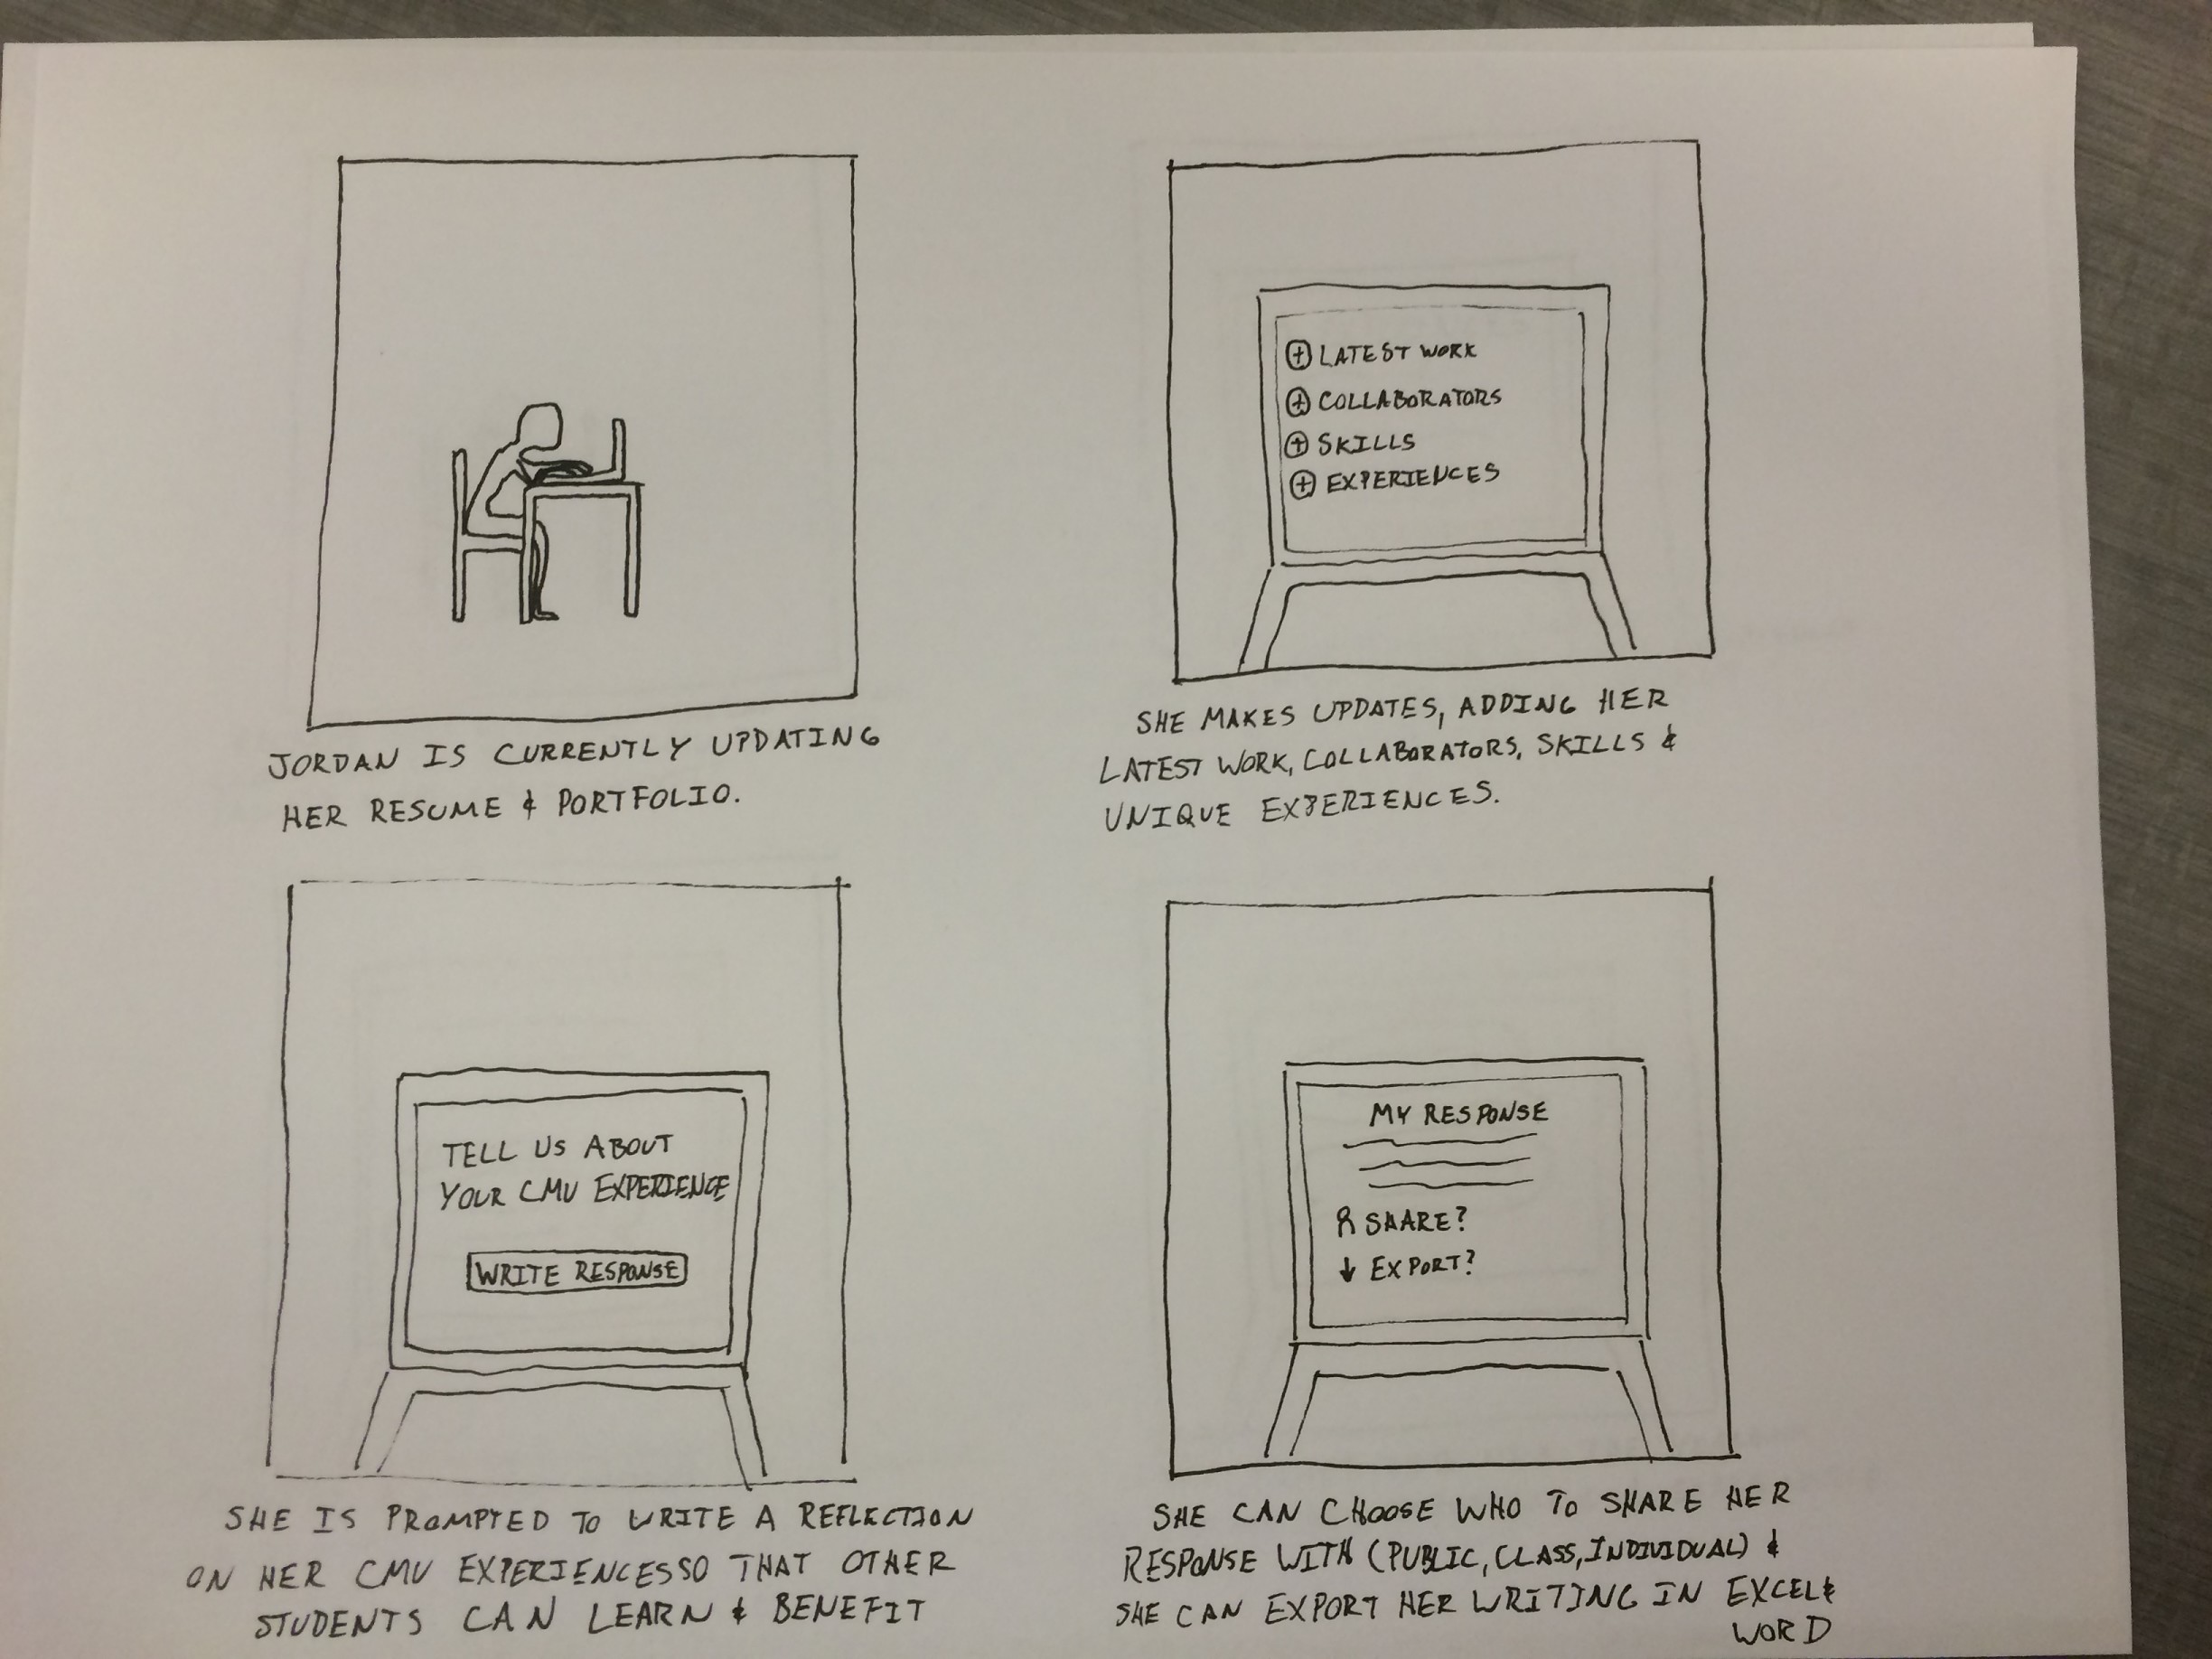 JORDAN IS CURRENTLY UPDATING
HER RESUME & PORTFOLIO.
⊕ LATEST WORK
⊕ COLLABORATORS
⊕ SKILLS
⊕ EXPERIENCES
SHE MAKES UPDATES, ADDING HER
LATEST WORK, COLLABORATORS, SKILLS &
UNIQUE EXPERIENCES.
TELL US ABOUT
YOUR CMU EXPERIENCE
WRITE RESPONSE
SHE IS PROMPTED TO WRITE A REFLECTION
ON HER CMU EXPERIENCES SO THAT OTHER
STUDENTS CAN LEARN & BENEFIT
MY RESPONSE
SHARE?
↓ EXPORT?
SHE CAN CHOOSE WHO TO SHARE HER
RESPONSE WITH (PUBLIC, CLASS, INDIVIDUAL) &
SHE CAN EXPORT HER WRITING IN EXCEL &
WORD